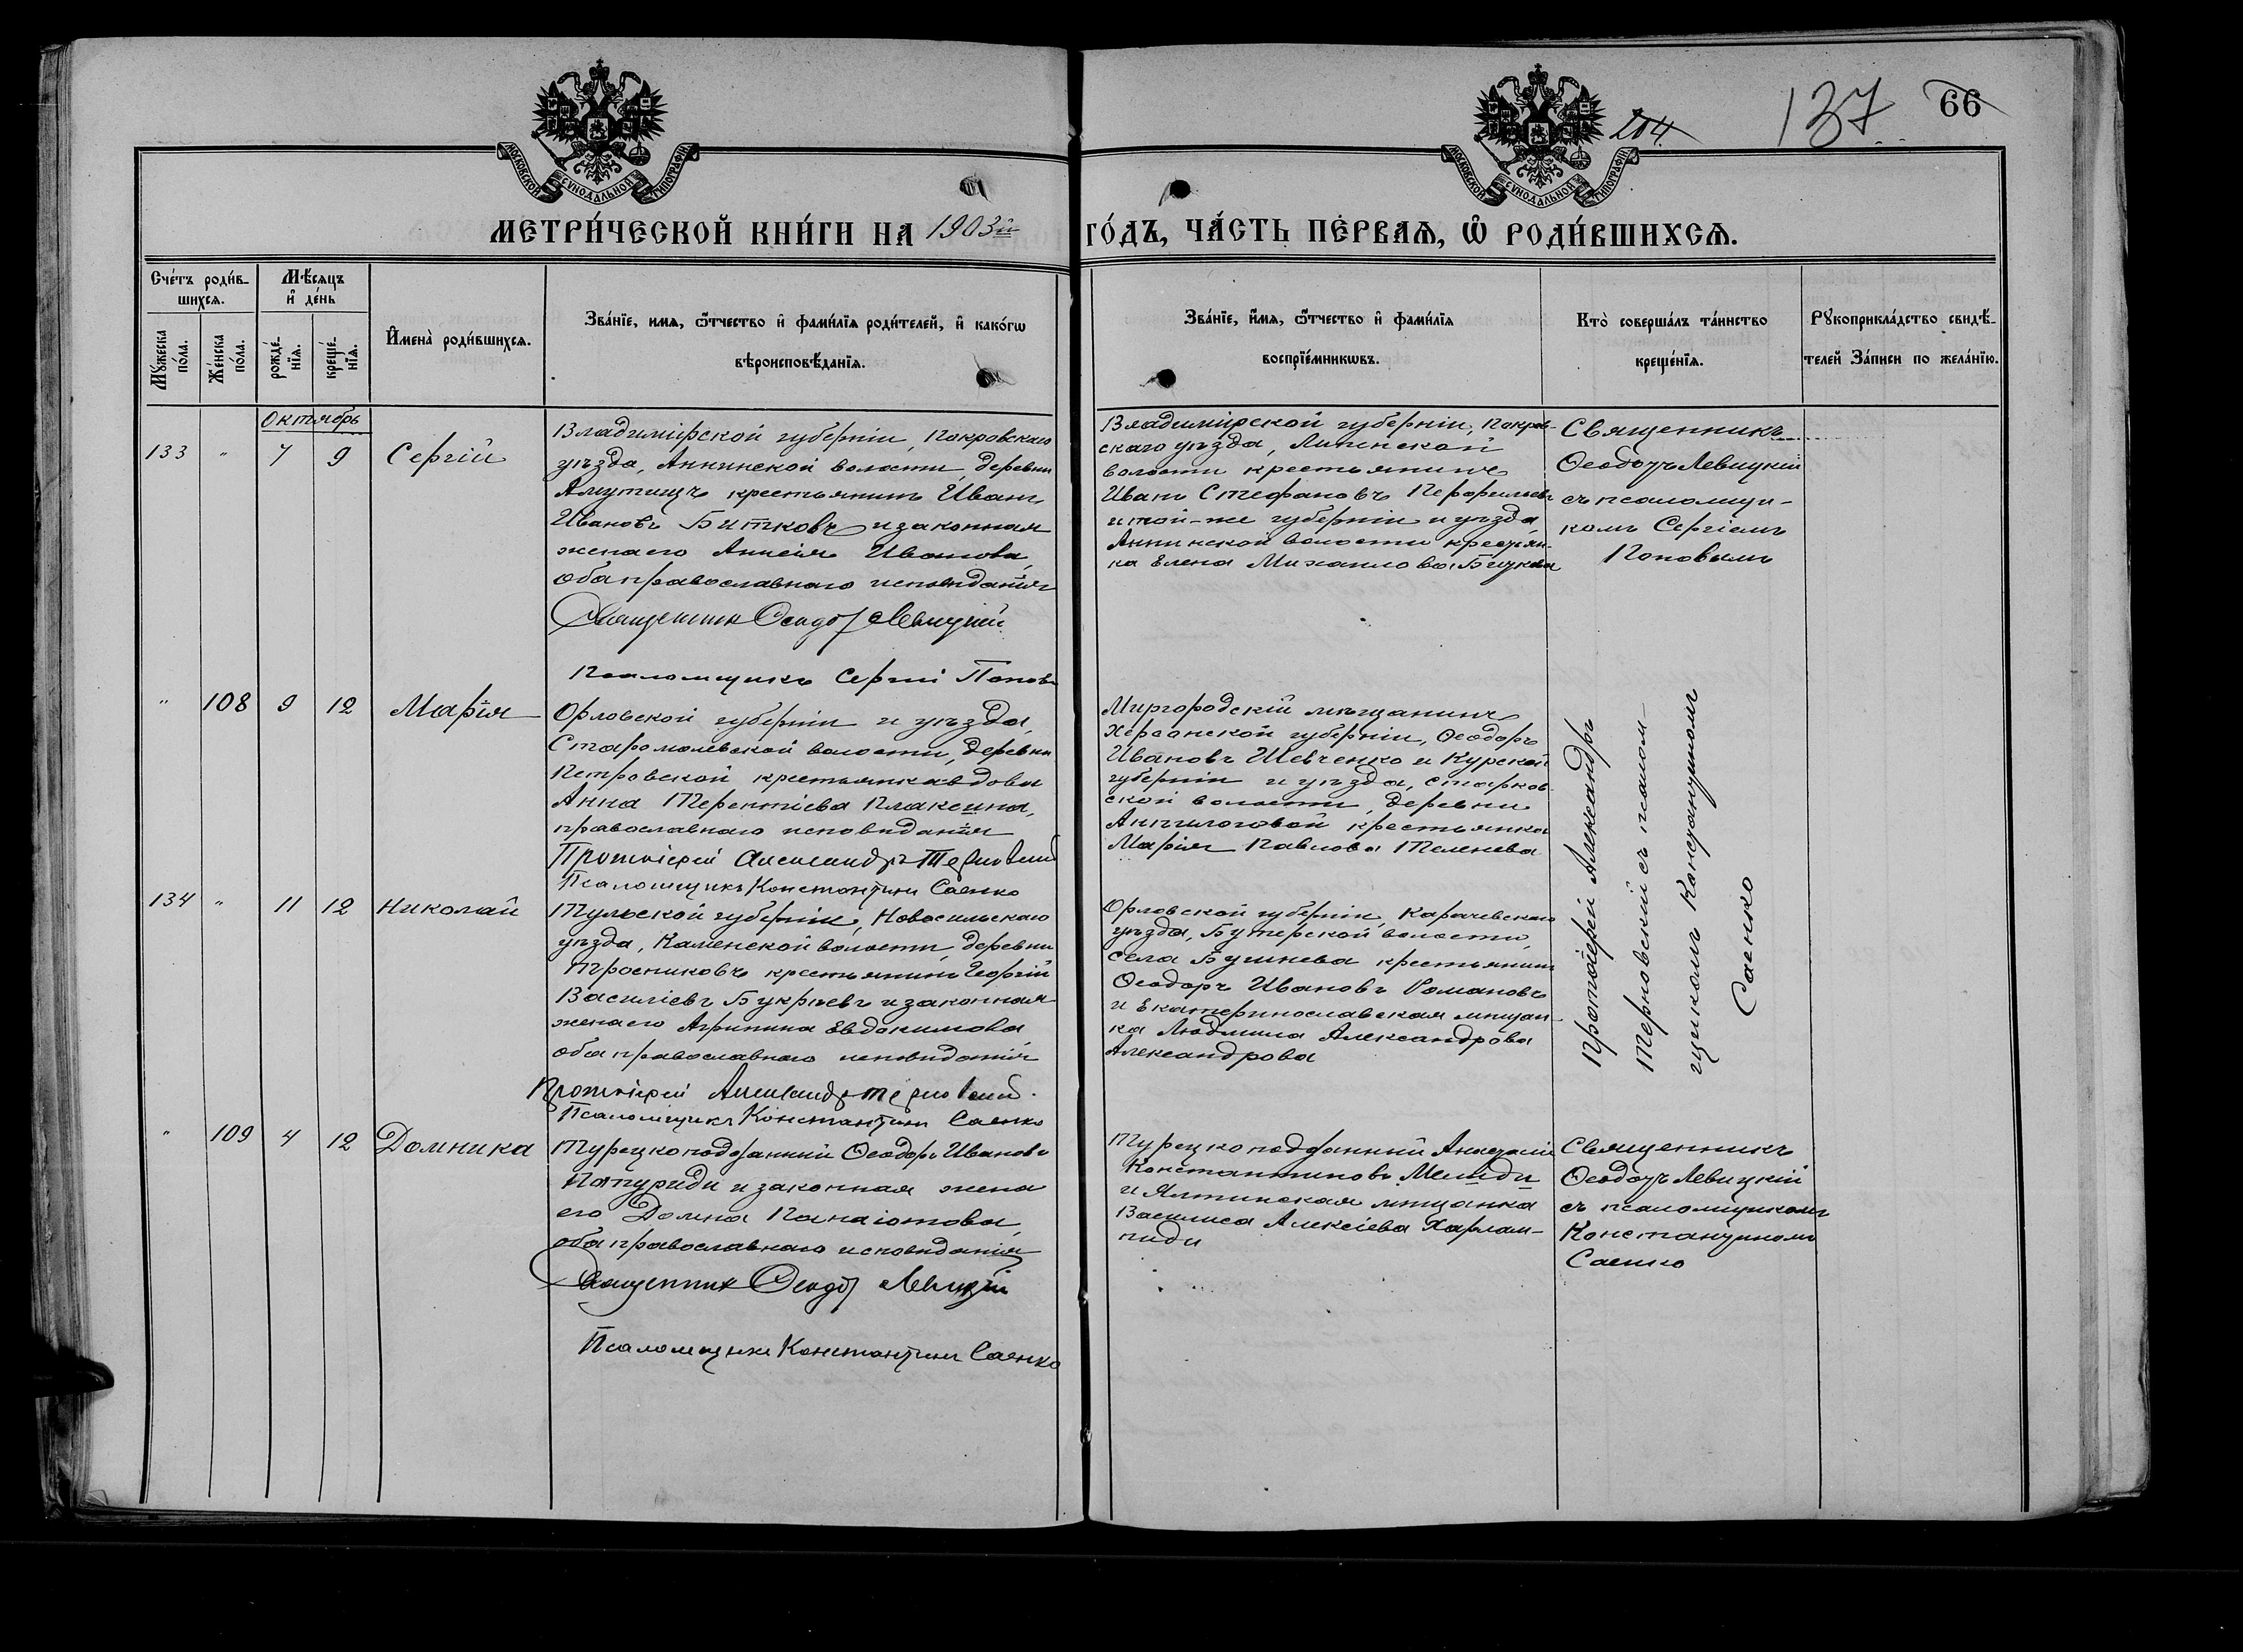 137
66
204
МОСКОВСКОЙ СѴНОДАЛЬНОЙ ТИПОГРАФІИ
МОСКОВСКОЙ СѴНОДАЛЬНОЙ ТИПОГРАФІИ
МЕТРИ́ЧЕСКОЙ КНИ́ГИ НА 1903й
ГО́ДЪ, ЧА́СТЬ ПЕ́РВАѦ, Ѡ҆ РОДИ́ВШИХСѦ.
Сче́тъ роди́в-
шихсѧ.
Мѣ́сяцъ
и҆ де́нь
Мꙋжеска по́ла.
Же́нска по́ла.
рожде́-
нїѧ.
креще́-
нїѧ.
И҆мена̀ роди́вшихсѧ.
Зва́нїе, имѧ, ѻ҆́тчество и҆ фами́лїѧ роди́телей, и҆ како́гѡ
вѣроисповѣ́данїѧ.
Зва́нїе, и҆́мѧ, ѻ҆́тчество и҆ фами́лїѧ
воспрїе́мникѡвъ.
Кто̀ соверша́лъ та́инство
креще́нїѧ.
Рꙋкоприкла́дство свидѣ́-
телей За́писи по жела́нїю.
Октябрь
133 " 7 9 Сергій
Владимірской губерніи, Покровскаго
уѣзда, Аннинской волости, деревни
Амутищъ крестьянинъ Иванъ
Ивановъ Битковъ и законная
жена его Анисія Иванова,
оба православнаго исповѣданія
Священник Ѳеодоръ Левицкій
Псаломщикъ Сергій Поповъ
Владимірской губерніи, Покров-
скаго уѣзда, Липенской
волости крестьянинъ
Иванъ Стефановъ Перфильевъ
и той-же губерніи и уѣзда
Аннинской волости крестьян-
ка Елена Михаилова
Священникъ
Ѳеодоръ Левицкій
съ псаломщи-
комъ Сергіемъ
Поповымъ
" 108 9 12 Марія
Орловской губерніи и уѣзда,
волости, деревни
Петровской крестьянка вдова
Анна Терентіева Плаксина,
православнаго исповѣданія
Протоіерей Александръ Терновскій
Псаломщикъ Константинъ Саенко
Миргородскій мѣщанинъ
Херсонской губерніи, Ѳеодоръ
Ивановъ Шевченко и Курской
губерніи и уѣзда, Старков-
ской волости, деревни
крестьянка
Марія Павлова Теленева
Протоіерей Александръ
Терновскій съ псалом-
щикомъ Константиномъ
Саенко
134 " 11 12 Николай
Тульской губерніи, Новосильскаго
уѣзда, Каменской волости, деревни
Тросниковъ крестьянинъ Георгій
Василіевъ Букрѣевъ и законная
жена его Агрипина Евдокимова,
оба православнаго исповѣданія
Протоіерей Александръ Терновскій.
Псаломщикъ Константинъ Саенко
Орловской губерніи, Карачевскаго
уѣзда, Бутерской волости,
села крестьянинъ
Ѳеодоръ Ивановъ Романовъ
и Екатеринославская мѣщан-
ка Людмила Александрова
Александрова
" 109 4 12 Домника
Турецкоподданный Ѳеодоръ Ивановъ
Папуриди и законная жена
его Домна Панаіотова,
оба православнаго исповѣданія
Священник Ѳеодоръ Левицкій
Псаломщикъ Константинъ Саенко
Турецкоподданный
Константиновъ
и Ялтинская мѣщанка
Василиса Алексіева Харлам-
пиди
Священникъ
Ѳеодоръ Левицкій
съ псаломщикомъ
Константиномъ
Саенко